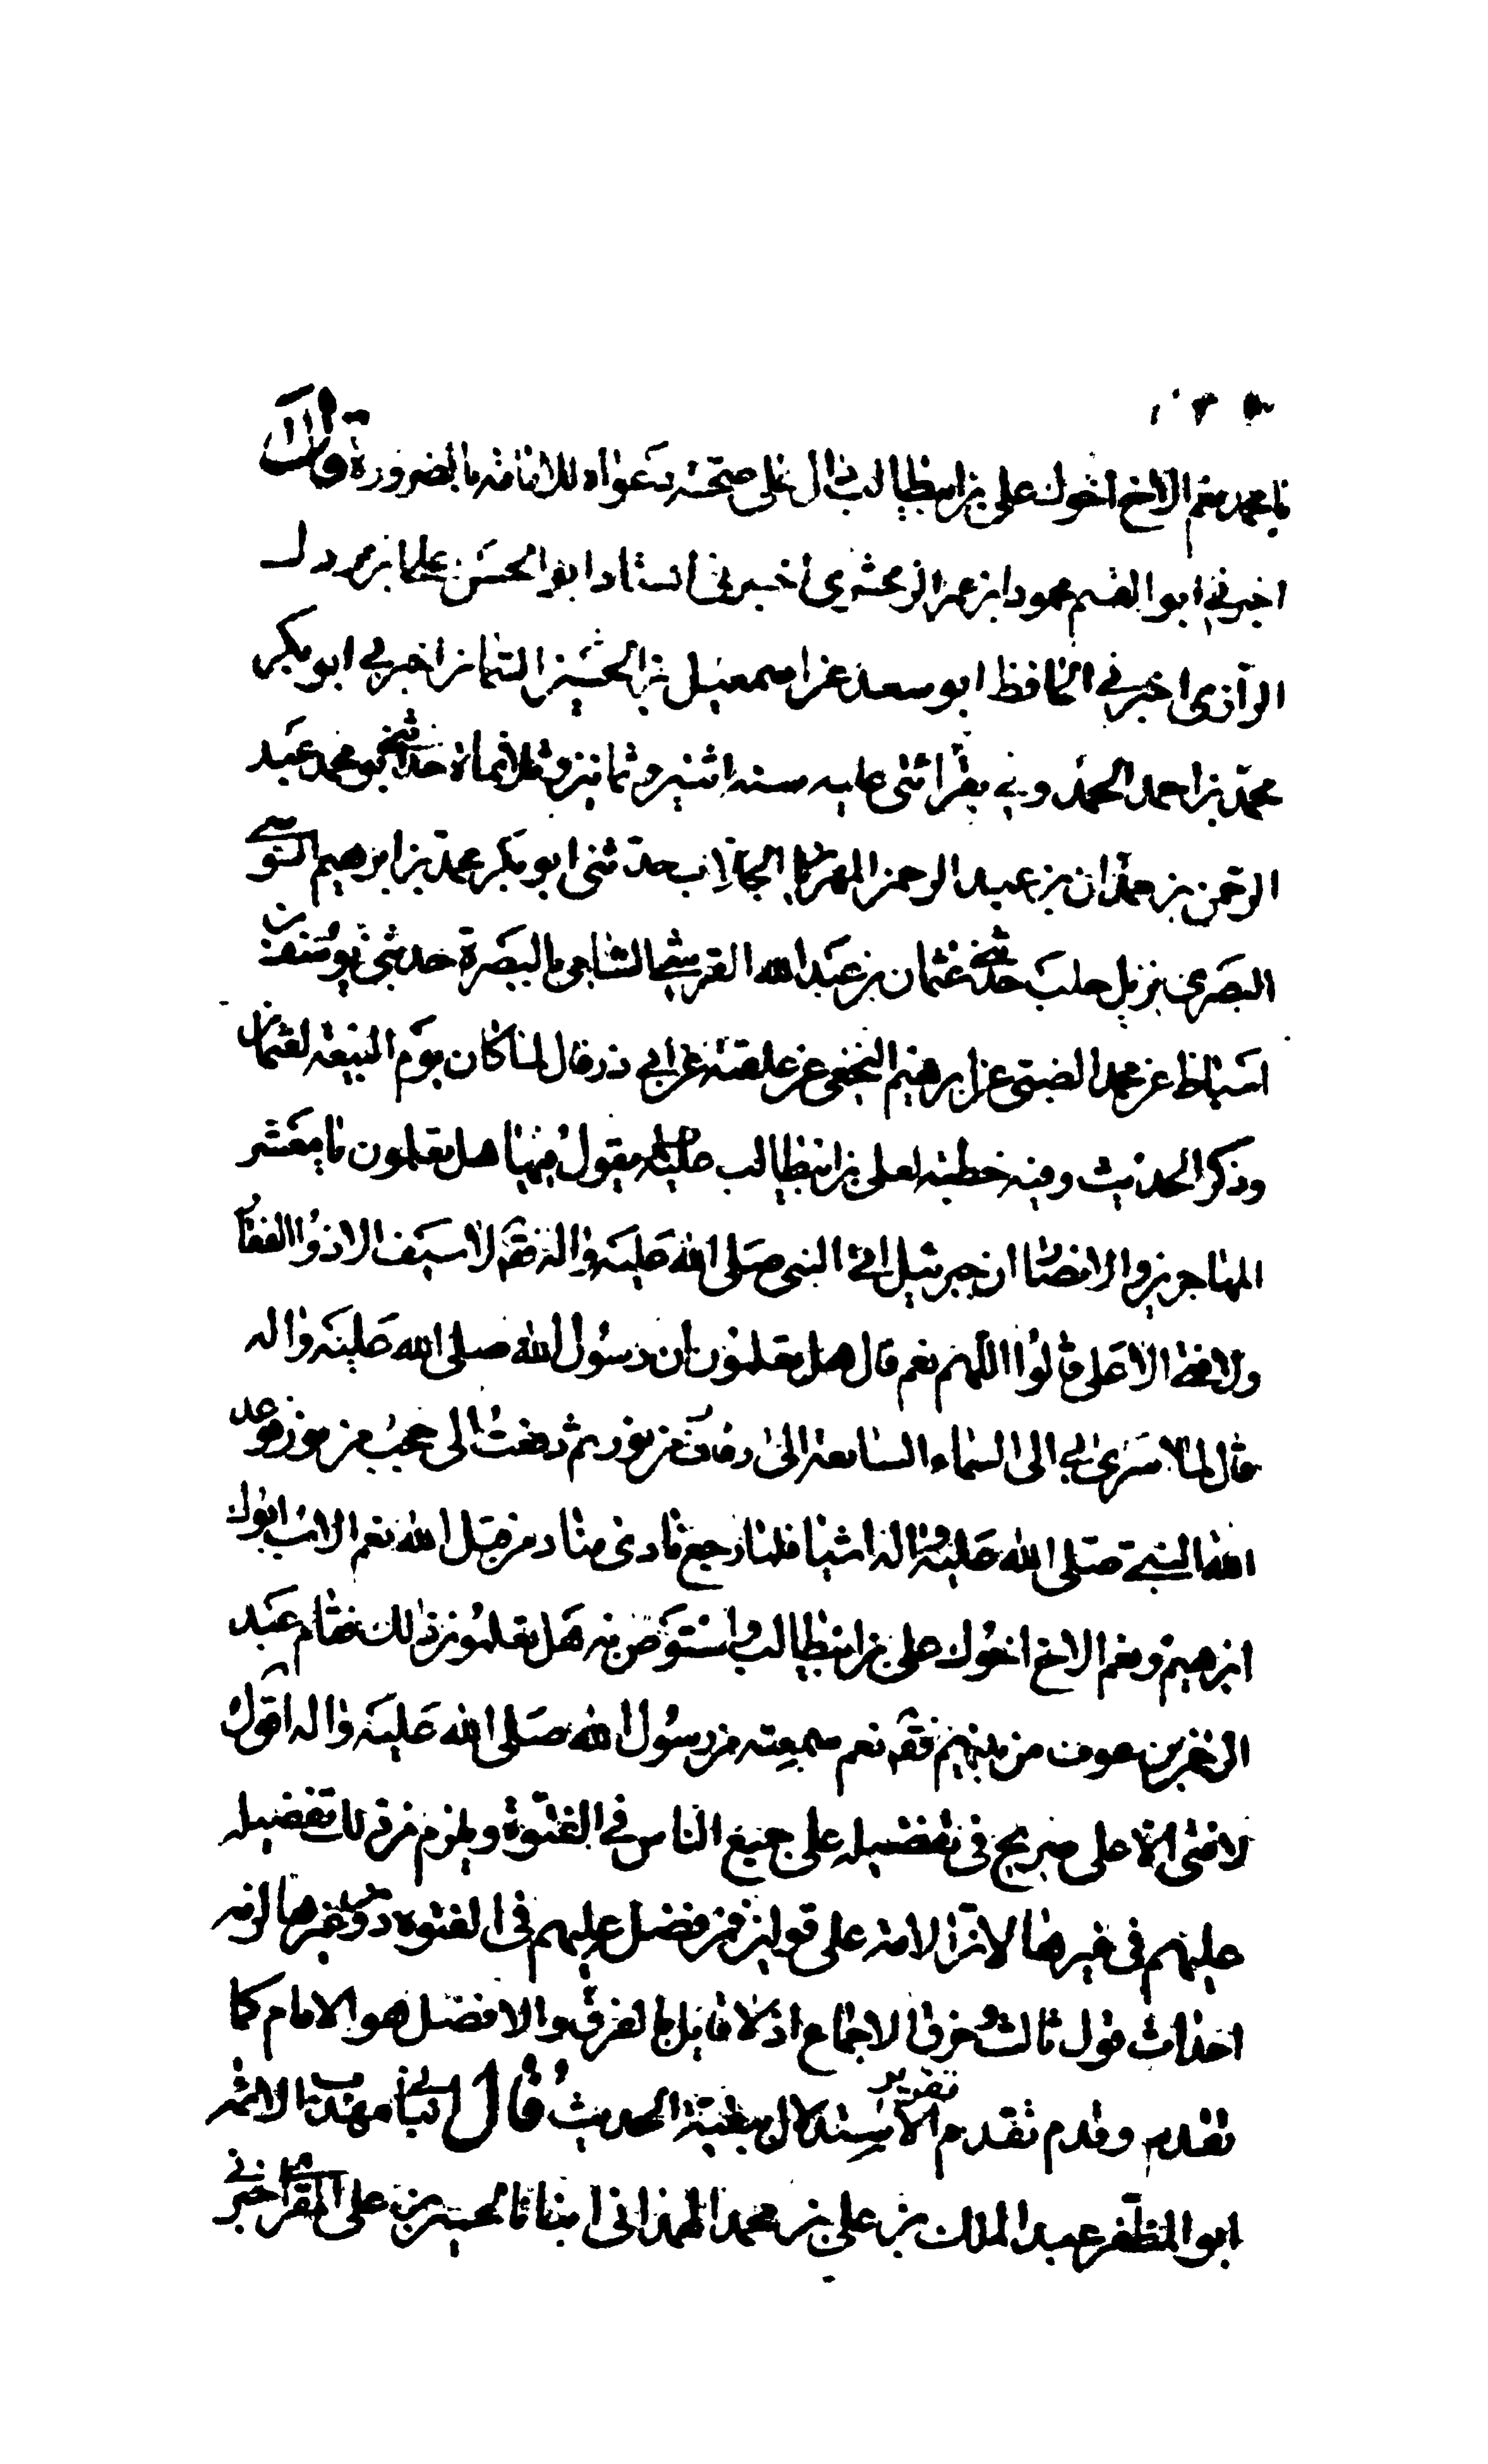 يا محمد نعم الاخ اخوك علي بن ابيطالب دال على صحة دعواه للامامة بالضرورة وقال
اخبرني ابو القسم محمود ابن عمر الزمخشري اخبرني استاد ابو الحسن علي بن مردك
الرازي اخبرني الحافظ ابو سعد عن اسمعيل بن الحسين السمان اخبرني ابو بكر
محمد بن احمد الحمدوني بقرائتي عليه سنة اثنين وثمانين وثلاثمائة حدثني ابو محمد عبد
الرحمن بن حمدان بن عبد الرحمن الجلاب حدثني ابو بكر محمد بن ابرهيم السوسي
البصري نزيل حلب حدثني عثمان بن عبد الله القرشي الشامي بالبصرة حدثني يوسف بن
اسباط عن محمد الضبي عن ابرهيم النخعي عن علقمة عن ابي ذر قال لما كان يوم البيعة لعثمان
وذكر الحديث وفيه خطبة لعلي بن ابيطالب عليه يقول فيها هل تعلمون يا معشر
المهاجرين والانصار ان جبرئيل اتى النبي صلى الله عليه واله فقال لا سيف الا ذو الفقار
ولا فتى الا علي قالوا اللهم نعم قال هل تعلمون ان رسول الله صلى الله عليه واله
قال لما اسرى بي الى السماء السابعة الى رفارف من نور ثم رفعت الى حجب من نور فوعد
الله النبي صلى الله عليه واله اشيا فلما رجع نادى مناد من قبل الله نعم الاب ابوك
ابرهيم ونعم الاخ اخوك علي بن ابيطالب واستوص به هل تعلمون ذلك فقام عبد
الرحمن بن عوف من بينهم فقال نعم سمعته من رسول الله صلى الله عليه واله اقول
لا فتى الا علي صريح في تفضيله على جميع الناس في الفتوة ويلزم من ذلك تفضيله
عليهم في غيرها لان الامة على قولين فمن فضل عليهم في الفتوة دون غيرها لزمه
احداث قول ثالث وخرق الاجماع اذ لا قايل بالفرق والافضل هو الامام كما
تقدم وقدم تقدم تقرير الاستدلال ببقية الحديث قال انبانى مهذب الائمة
ابو المظفر عبد الملك بن علي بن محمد الهمداني انبانا الحسين بن علي المقرى اخبرني